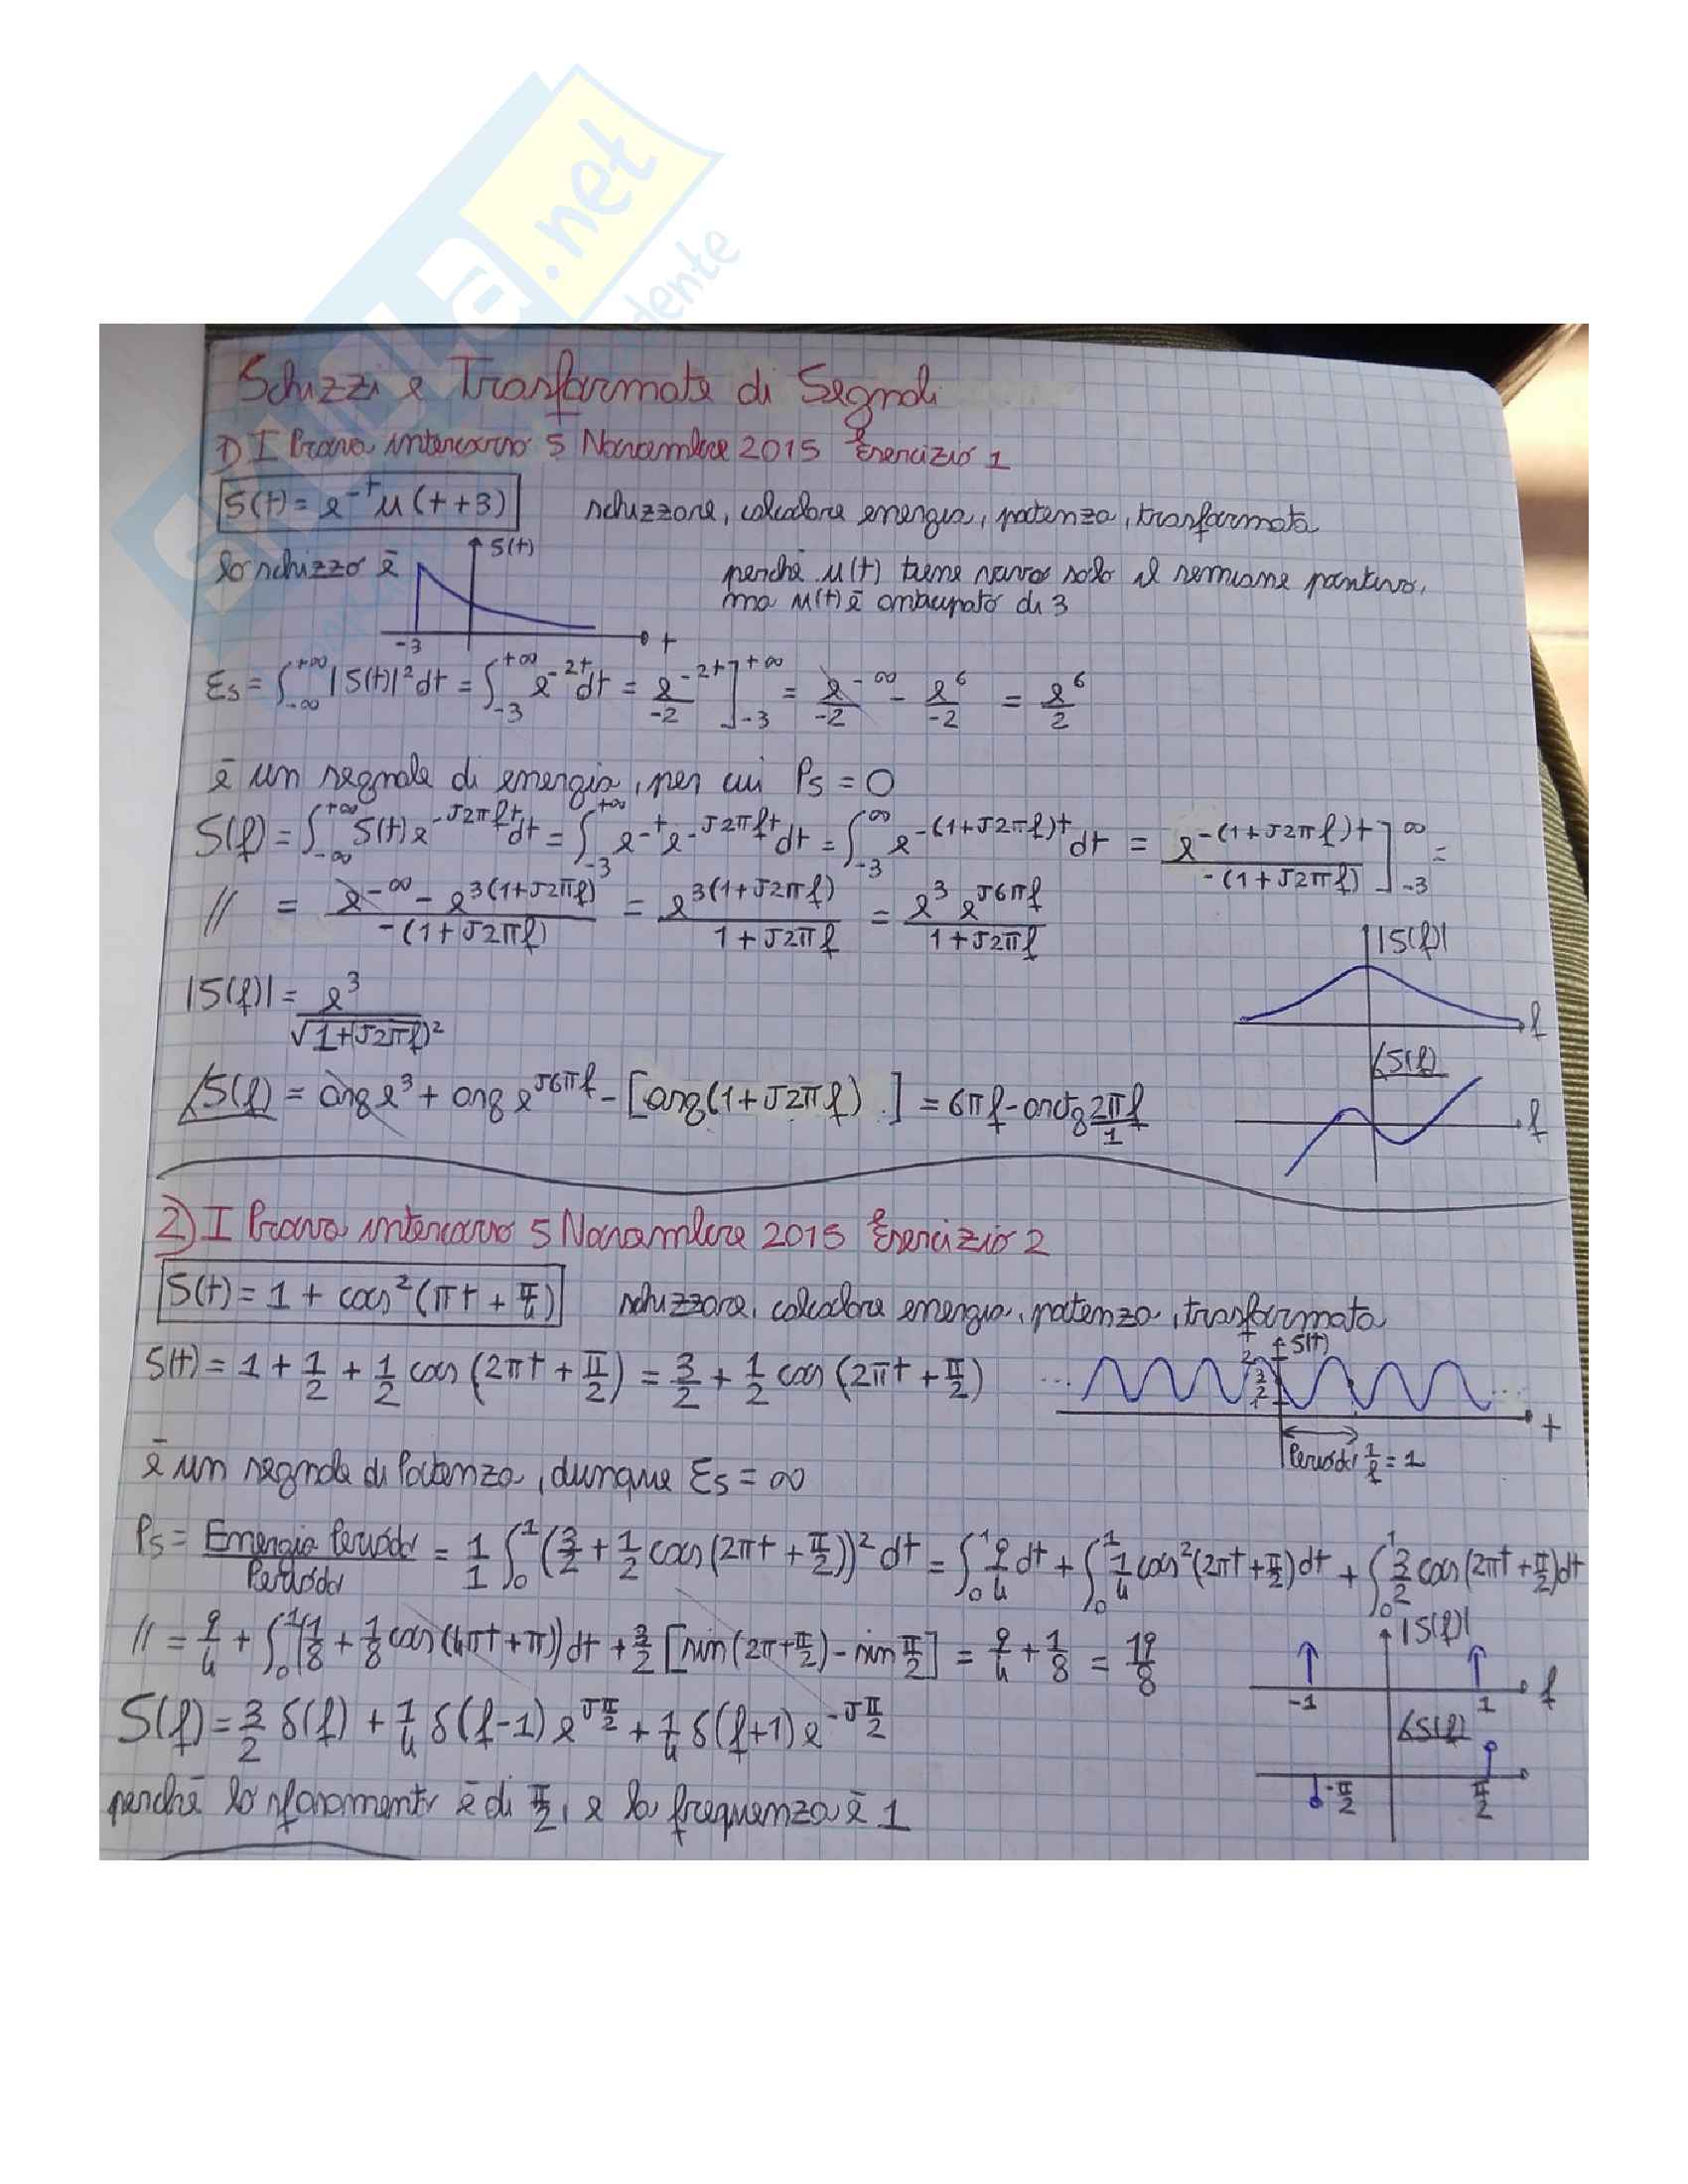 GRULLA.net
dente
Schizzi e Trasformate di Segnali
1) I Prova intercorso 5 Novembre 2015 Esercizio 1
S(t) = e^-t u(t+3) schizzare, calcolare energia, potenza, trasformata
lo schizzo è S(t) -3 t perché u(t) tiene vivo solo il semiasse positivo,
ma u(t) è anticipato di 3
Es = ∫_-∞^+∞ |S(t)|² dt = ∫_-3^+∞ e^-2t dt = e^-2t/-2 ]_-3^+∞ = e^-∞/-2 - e^6/-2 = e^6/2
è un segnale di energia, per cui Ps = 0
S(f) = ∫_-∞^+∞ S(t) e^-J2πft dt = ∫_-3^+∞ e^-t e^-J2πft dt = ∫_-3^∞ e^-(1+J2πf)t dt = e^-(1+J2πf)t / -(1+J2πf) ]_-3^∞ =
// = e^-∞ - e^3(1+J2πf) / -(1+J2πf) = e^3(1+J2πf) / 1+J2πf = e^3 e^J6πf / 1+J2πf
|S(f)| f
|S(f)| = e^3 / √1+(J2πf)²
∠S(f) f
∠S(f) = arg e^3 + arg e^J6πf - [arg(1+J2πf)] = 6πf - arctg 2πf/1
2) I Prova intercorso 5 Novembre 2015 Esercizio 2
S(t) = 1 + cos²(πt + π/4) schizzare, calcolare energia, potenza, trasformata
S(t) = 1 + 1/2 + 1/2 cos(2πt + π/2) = 3/2 + 1/2 cos(2πt + π/2) ... 2 3/2 1 S(t) ... t
Periodo 1/f = 1
è un segnale di Potenza, dunque Es = ∞
Ps = Energia Periodo / Periodo = 1/1 ∫_0^1 (3/2 + 1/2 cos(2πt + π/2))² dt = ∫_0^1 9/4 dt + ∫_0^1 1/4 cos²(2πt + π/2) dt + ∫_0^1 3/2 cos(2πt + π/2) dt
// = 9/4 + ∫_0^1 (1/8 + 1/8 cos(4πt + π)) dt + 3/2 [sin(2π + π/2) - sin π/2] = 9/4 + 1/8 = 19/8
|S(f)| -1 1 f
S(f) = 3/2 δ(f) + 1/4 δ(f-1) e^Jπ/2 + 1/4 δ(f+1) e^-Jπ/2
∠S(f) -π/2 π/2
perché lo sfasamento è di π/2, e la frequenza è 1